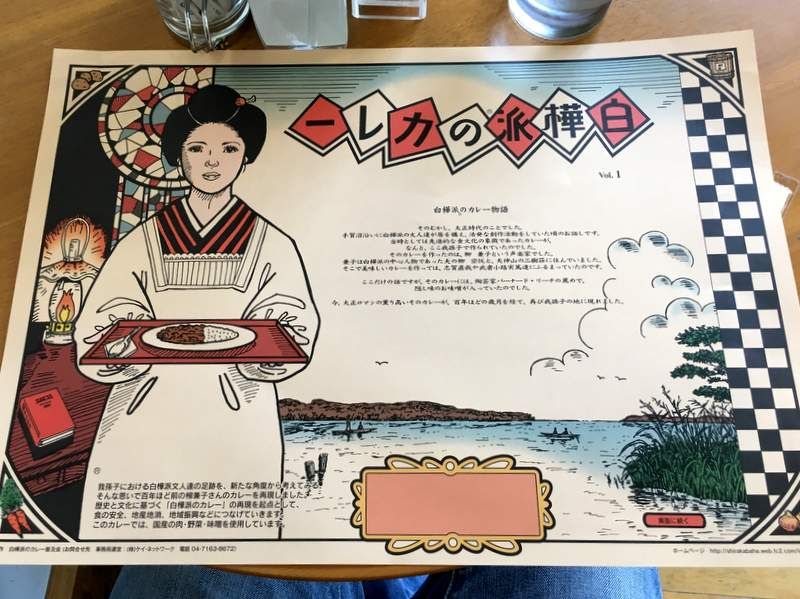 白樺派のカレー
Vol. 1
白樺派のカレー物語
そのむかし、大正時代のことでした。
手賀沼沿いに白樺派の文人達が居を構え、活発な創作活動をしていた頃のお話しです。
当時としては先進的な食文化の象徴であったカレーが、
なんと、ここ我孫子で作られていたのでした。
そのカレーを作ったのは、柳 兼子という声楽家でした。
兼子は白樺派の中心人物であった夫の柳 宗悦と、天神山の三樹荘に住んでいました。
そこで美味しいカレーを作っては、志賀直哉や武者小路実篤達にふるまっていたのです。
ここだけの話ですが、そのカレーには、陶芸家バーナード・リーチの薦めで、
隠し味のお味噌が入っていたのでした。
今、大正ロマンの薫り高いそのカレーが、百年ほどの歳月を経て、再び我孫子の地に現れました。
我孫子における白樺派文人達の足跡を、新たな角度から考えてみる
そんな思いで百年ほど前の柳兼子さんのカレーを再現しました。
歴史と文化に基づく「白樺派のカレー」の再現を起点として、
食の安全、地産地消、地域振興などにつなげていきます。
このカレーでは、国産の肉・野菜・味噌を使用しています。
裏面に続く
作 白樺派のカレー普及会 (お問合せ先 事務局運営:(株)ケイ・ネットワーク 電話 04-7163-8672)
ホームページ http://shirakabaha.web.fc2.com/